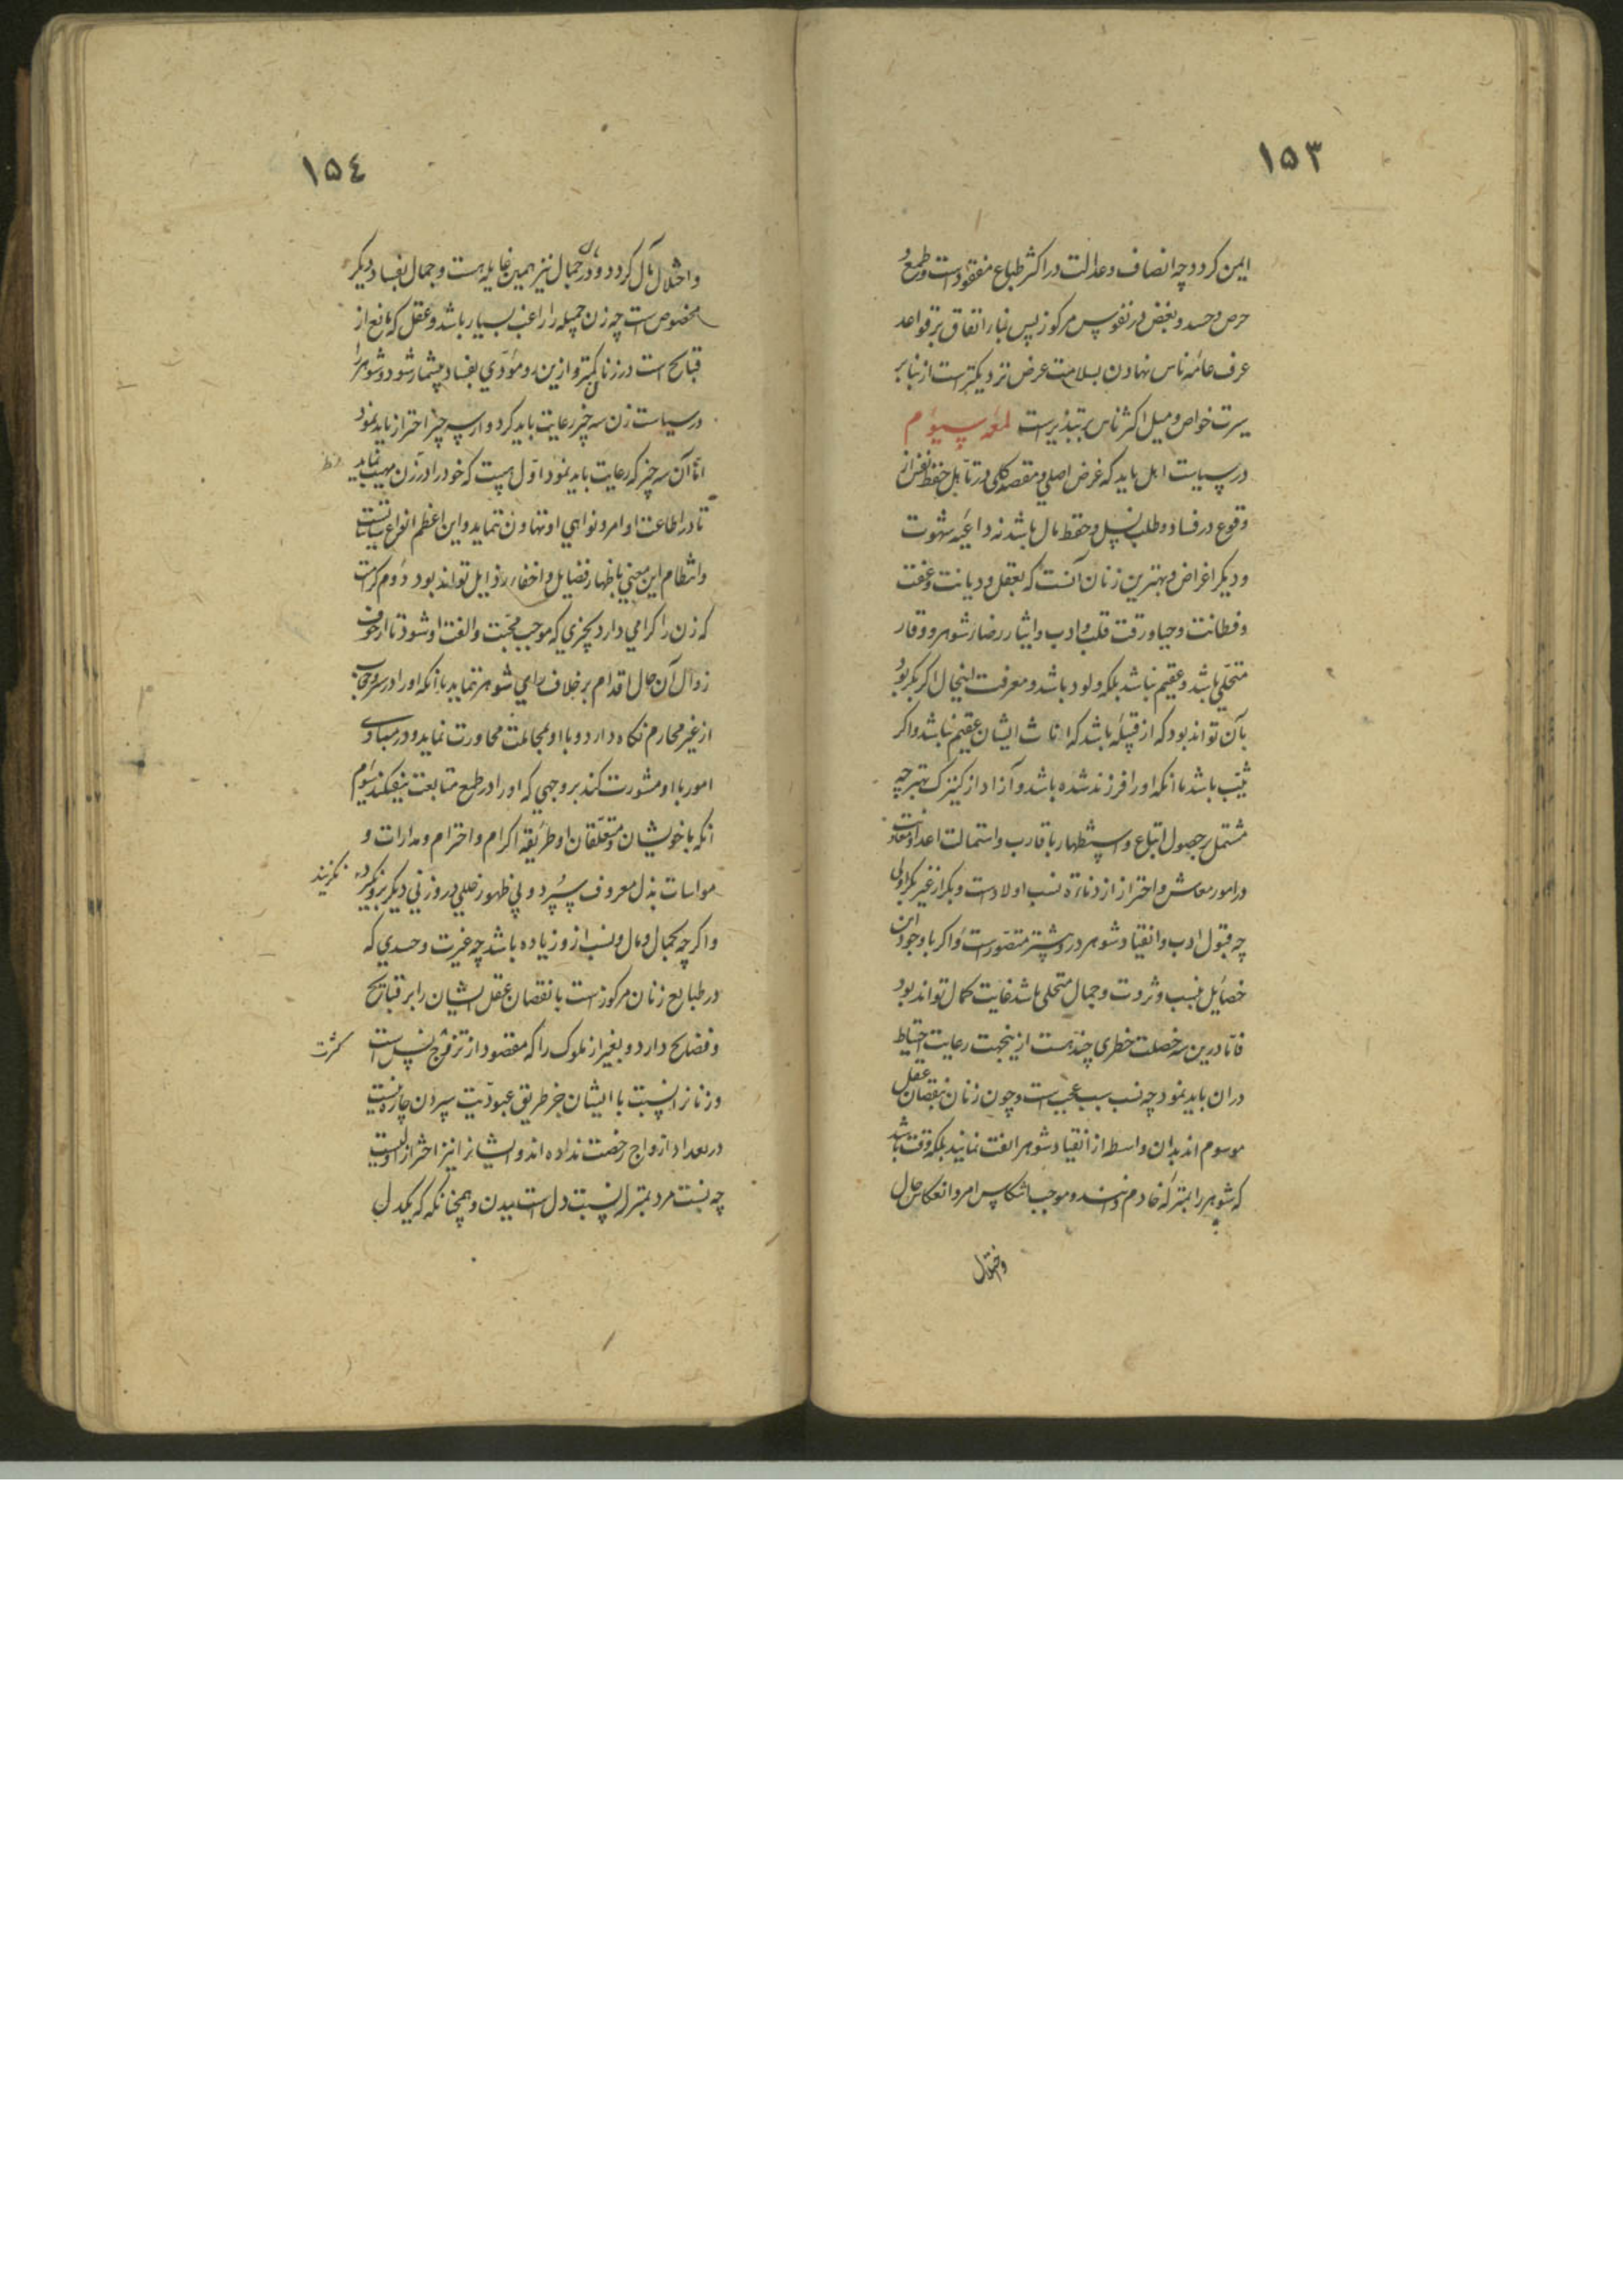 ١٥٣
ایمن کردد چه انصاف و عدالت در اکثر طباع مفقودست و طمع و
حرص و حسد و بغض در نفوس مرکوز پس بنا را اتفاق بر قواعد
عرف عامّه ناس نهادن بسلامت عرض نزدیکترست از بنا بر
سیرت خواص و میل اکثر ناس بتبذیرست لمعه سیوم
در سیاست اهل باید که غرض اصلی و مقصد کلی در تأهل حفظ نفس از
وقوع در فساد و طلب نسل و حفظ مال باشد نه داعیه شهوت
و دیکر اغراض و بهترین زنان آنست که بعقل و دیانت و عفت
و فطانت و حیا و رقت قلب و ادب و ایثار رضاء شوهر و وقار
متحلّی باشد و عقیم نباشد بلکه ولود باشد و معرفت اینحال اکر بکر بود
بآن تواند بود که از قبیله باشد که اناث ایشان عقیم نباشد و اکر
ثیّب باشد بآنکه او را فرزند شده باشد و آزاد از کنیزک بهتر چه
مشتمل بر حصول اتباع و استظهار باقارب و استمالت اعدا و معاونت
در امور معاش و احتراز از دناءة نسب اولادست و بکر از غیر بکر اولی
چه قبول ادب و انقیاد شوهر درو بیشتر متصورست و اکر با وجود این
خصایل بنسب و ثروت و جمال متحلی باشد غایت کمال تواند بود
فامّا درین سه خصلت خطری چند هست ازینجهت رعایت احتیاط
در آن باید نمود چه نسب سبب عجب است و چون زنان بنقصان عقل
موسوم اند بدان واسطه از انقیاد شوهر انفت نمایند بلکه وقت باشد
که شوهر را بمنزله خادم دانند و موجب انتکاس امر و انعکاس حال
واختلال
١٥٤
و اختلال مآل کردد و در مال و جمال نیز همین غایله هست و جمال بفساد دیکر
مخصوص است چه زن جمیله را راغب بسیار باشد و عقل که مانع از
قبایح است در زنان کمتر و ازین رو مؤدّی بفساد بیشمار شود و شوهر را
در سیاست زن سه چیز رعایت باید کرد و از سه چیز احتراز باید نمود
امّا آن سه چیز که رعایت باید نمود اوّل هیبت که خود را در نظر زن مهیب نماید
تا در اطاعت اوامر و نواهی او تهاون ننماید و این اعظم انواع سیاستست
و انتظام این معنی باظهار فضایل و اخفاء رذایل تواند بود دوم کرامت
که زن را کرامی دارد بچیزی که موجب محبّت و الفت او شود تا از خوف
زوال آن حال اقدام بر خلاف رای شوهر ننماید بآنکه او را در ستر و حجاب
از غیر محارم نکاه دارد و با او بمجاملت محاورت نماید و در مبادی
امور با او مشورت کند بر وجهی که او را در طمع متابعت نیفکند سیوم
آنکه با خویشان و متعلّقان او طریقه اکرام و احترام و مدارات و
مواسات بذل معروف سپرد و بی ظهور خللی درو زنی دیکر برو نکزیند
و اکر چه بجمال و مال و نسب ازو زیاده باشد چه غیرت و حسدی که
در طبایع زنان مرکوز است با نقصان عقل ایشان را بر قبایح
و فضایح دارد و بغیر از ملوک را که مقصود از تزوّج کثرت نسل است
و زنانرا نسبت با ایشان جز طریق عبودیّت سپردن چاره نیست
در تعداد ازواج رخصت نداده اند و ایشانرا نیز احتراز اولیست
چه نسبت مرد بمنزل نسبت دل است ببدن و همچنانکه که یکدل